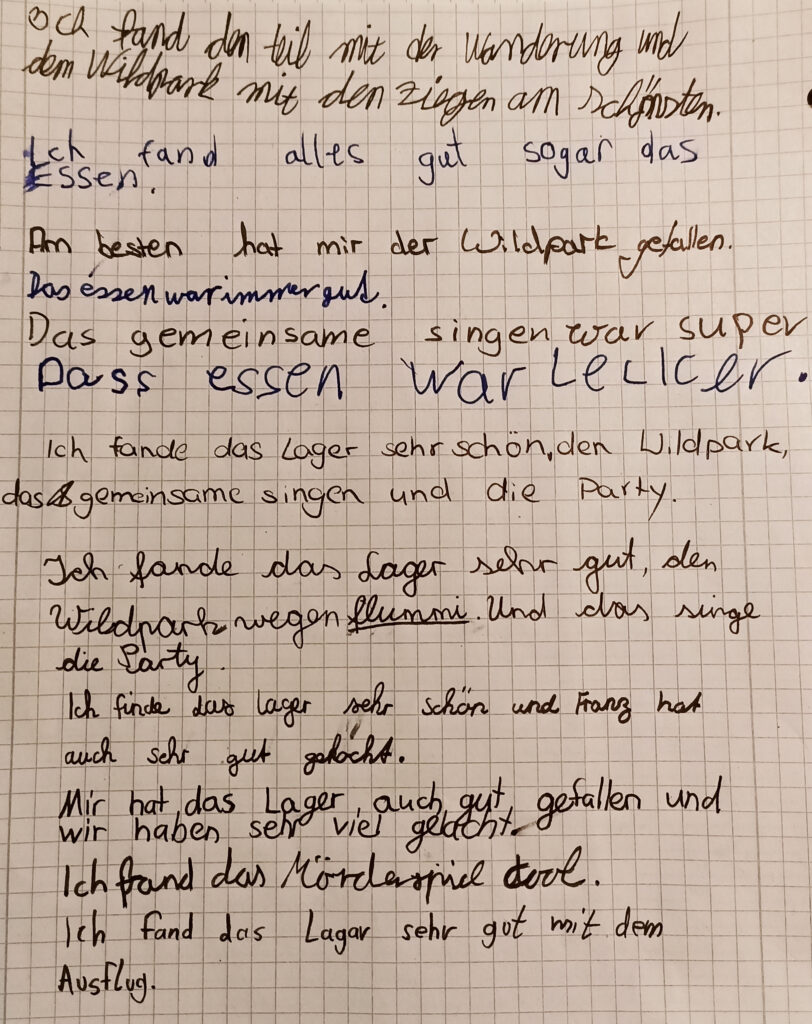 Ich fand den teil mit der Wanderung und
dem Wildpark mit den ziegen am schönsten.
Ich fand alles gut sogar das
Essen.
Am besten hat mir der Wildpark gefallen.
Das essen war immer gut.
Das gemeinsame singen war super
Dass essen war Lecker.
Ich fande das Lager sehr schön, den Wildpark,
das gemeinsame singen und die Party.
Ich fande das Lager sehr gut, den
Wildpark wegen flummi. Und das singe
die Party.
Ich finde das lager sehr schön und Franz hat
auch sehr gut gekocht.
Mir hat das Lager auch gut gefallen und
wir haben sehr viel gelacht.
Ich fand das Mörderspiel cool.
Ich fand das Lagar sehr gut mit dem
Ausflug.